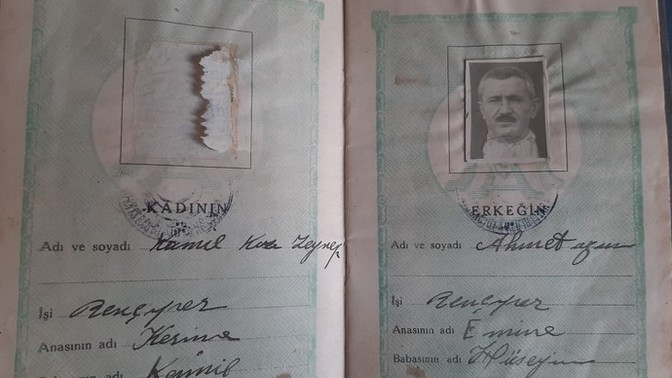 KADININ
Adı ve soyadı Kamil Kızı Zeynep
İşi Rençper
Anasının adı Kerime
Babasının adı Kâmil
ERKEĞİN
Adı ve soyadı Ahmet
İşi Rençper
Anasının adı Emine
Babasının adı Hüseyin